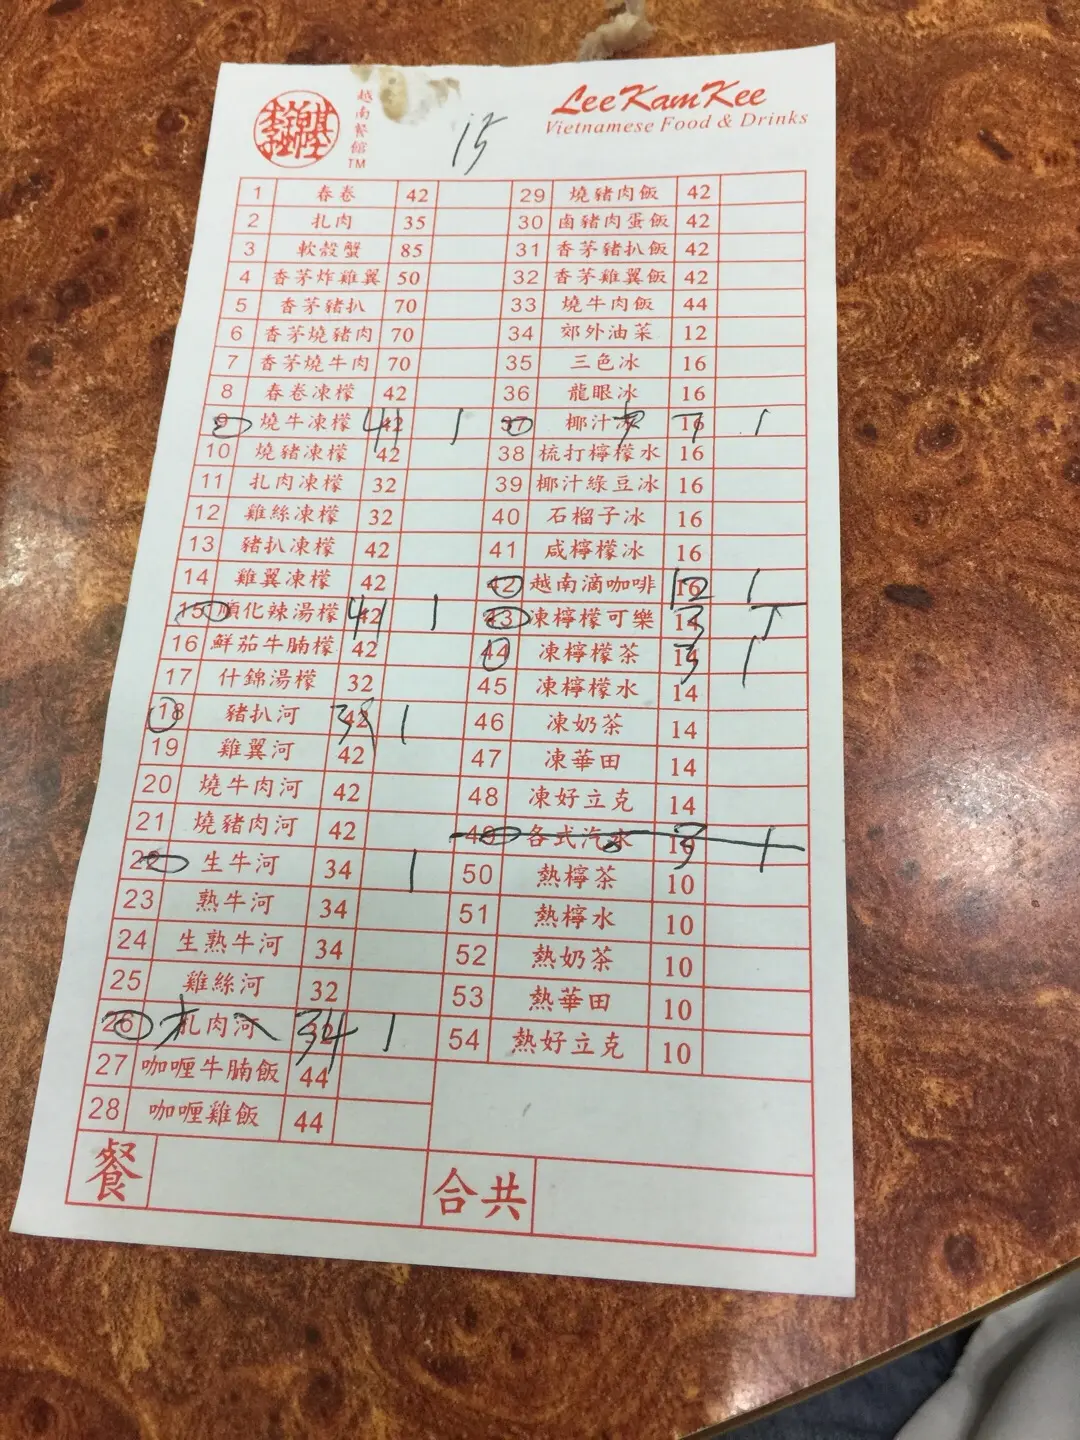 李錦基
越南餐館 TM
LeeKamKee
Vietnamese Food & Drinks
15
1 春卷 42
2 扎肉 35
3 軟殼蟹 85
4 香茅炸雞翼 50
5 香茅豬扒 70
6 香茅燒豬肉 70
7 香茅燒牛肉 70
8 春卷凍檬 42
9 燒牛凍檬 42 41 1
10 燒豬凍檬 42
11 扎肉凍檬 32
12 雞絲凍檬 32
13 豬扒凍檬 42
14 雞翼凍檬 42
15 順化辣湯檬 42 41 1
16 鮮茄牛腩檬 42
17 什錦湯檬 32
18 豬扒河 42 1
19 雞翼河 42
20 燒牛肉河 42
21 燒豬肉河 42
22 生牛河 34 1
23 熟牛河 34
24 生熟牛河 34
25 雞絲河 32
26 扎肉河 32 34 1
27 咖喱牛腩飯 44
28 咖喱雞飯 44
29 燒豬肉飯 42
30 鹵豬肉蛋飯 42
31 香茅豬扒飯 42
32 香茅雞翼飯 42
33 燒牛肉飯 44
34 郊外油菜 12
35 三色冰 16
36 龍眼冰 16
37 椰汁冰 16 7 1
38 梳打檸檬水 16
39 椰汁綠豆冰 16
40 石榴子冰 16
41 咸檸檬冰 16
42 越南滴咖啡 16 1
43 凍檸檬可樂 14 3 1
44 凍檸檬茶 14 3 1
45 凍檸檬水 14
46 凍奶茶 14
47 凍華田 14
48 凍好立克 14
49 各式汽水 10 3 1
50 熱檸茶 10
51 熱檸水 10
52 熱奶茶 10
53 熱華田 10
54 熱好立克 10
餐
合共